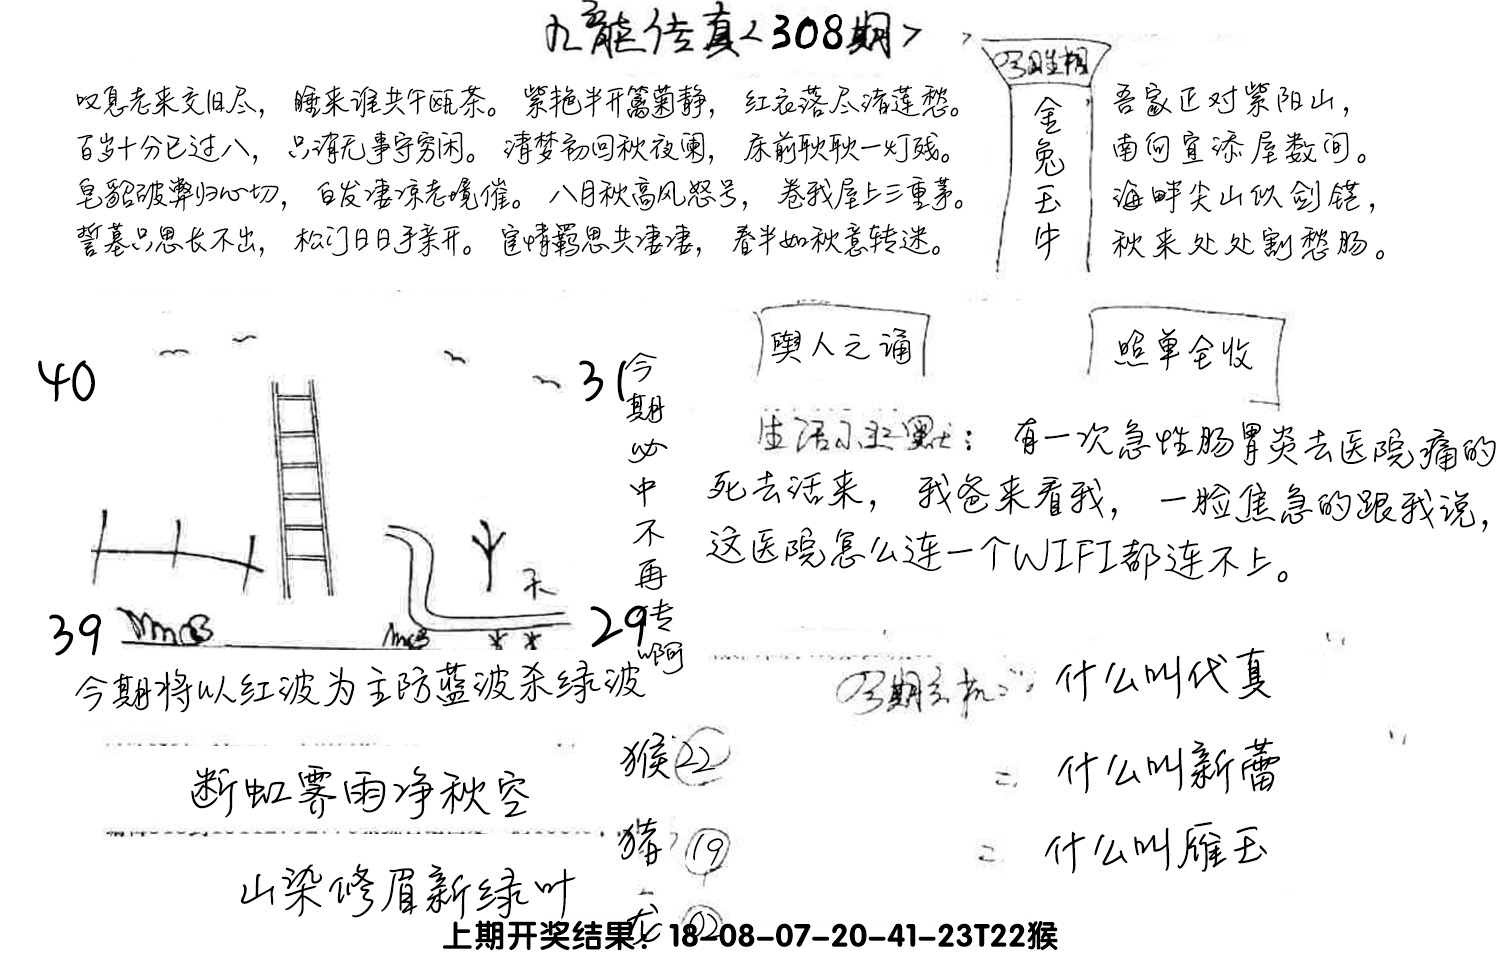 九龍传真<308期>
叹息老来交旧尽，睡来谁共午瓯茶。紫艳半开篱菊静，红衣落尽渚莲愁。
百岁十分已过八，只消无事守穷闲。清梦初回秋夜阑，床前耿耿一灯残。
皂貂破弊归心切，白发凄凉老境催。八月秋高风怒号，卷我屋上三重茅。
誓墓只思长不出，松门日日手亲开。宦情羁思共凄凄，春半如秋意转迷。
今日生相
金兔玉牛
吾家正对紫阳山，
南向宜添屋数间。
海畔尖山似剑铓，
秋来处处割愁肠。
舆人之诵
照单全收
40
31
39
29
今期必中不再转啊
生活小幽默：有一次急性肠胃炎去医院痛的
死去活来，我爸来看我，一脸焦急的跟我说，
这医院怎么连一个WIFI都连不上。
今期将以红波为主防蓝波杀绿波
今期玄机：什么叫代真
= 什么叫新蕾
= 什么叫雁玉
断虹霁雨净秋空
山染修眉新绿叶
猴 22
猪 19
龙 02
上期开奖结果：18-08-07-20-41-23T22猴